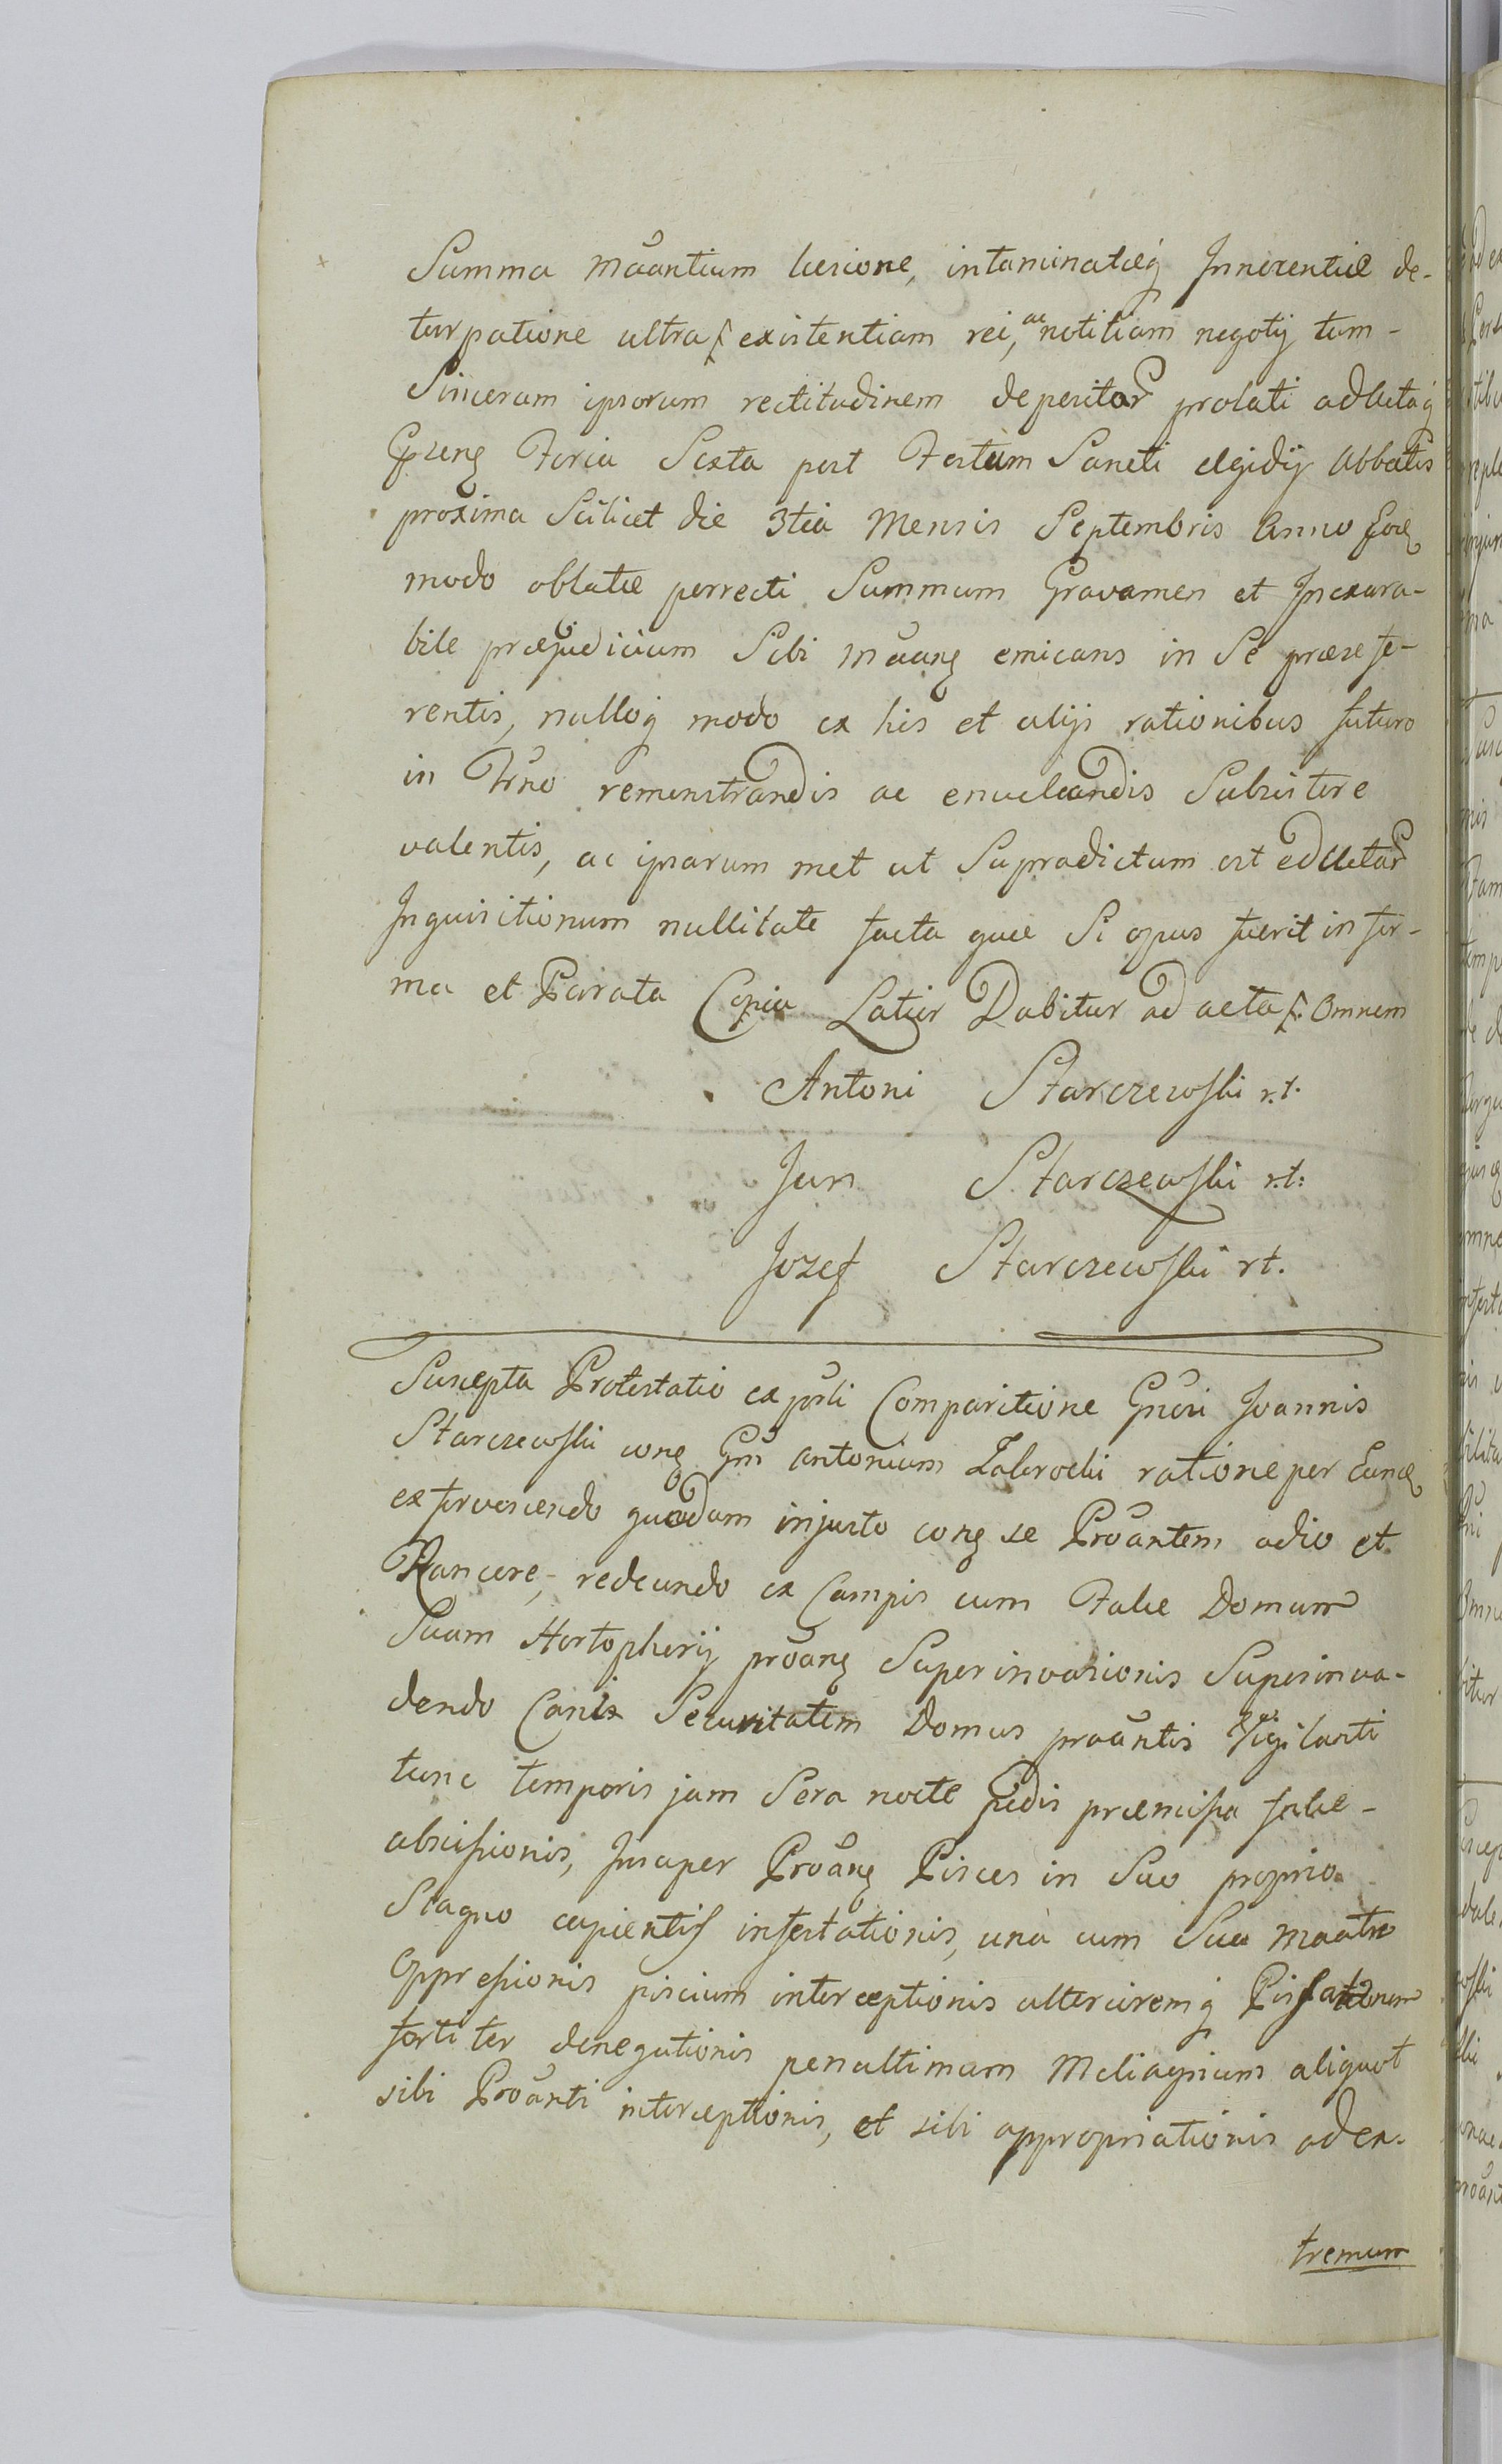 Summa Mãantium læsione, intaminatæq Innocentiæ de-
turpatione ultra existentiam rei, ac notitiam negotij tum-
Sinceram ipsorum rectitudinem deposita prolati
Feria Sexta post Festum Sancti Aegidij Abbatis
proxima Scilicet die 3tia Mensis Septembris Anno
modo oblatæ perrecti Summum Gravamen et Inexara-
bile præjudicium Sibi emicans in Se præse fe-
rentis, nulloq modo ex his et alijs rationibus futuro
in Trno remonstrandis ac enucleandis Subsistere
valentis, ac ipsarum met ut Supradictum est
Inquisitionum nullitate facta quæ Si opus fuerit in for-
ma et Parata Copia Latior Dabitur ad acta Omnem
Antoni Starczewski r.t.
Jan Starczewski r.t:
Jozef Starczewski rt.
Suscepta Protestatio ex Comparitione Gnosi Joannis
Starczewski Antonium ratione per
exfervescendo quodam injusto se Proãntem odio et
Rancore, redeundo ex Campis cum Falce Domum
Suam Superinvasionis Superinva-
dendo Canis Securitatem Domus proãntis Vigilanti
tunc temporis jam Sera nocte pedis præmissa falce-
abscissionis, Insuper Pisces in Suo proprio
Stagno capientis infestationis, una cum Sua
Oppressionis piscium interceptionis
fortiter denegationis penultimam aliquot
sibi Proãnti interceptionis, et sibi appropriationis adex-
tremum